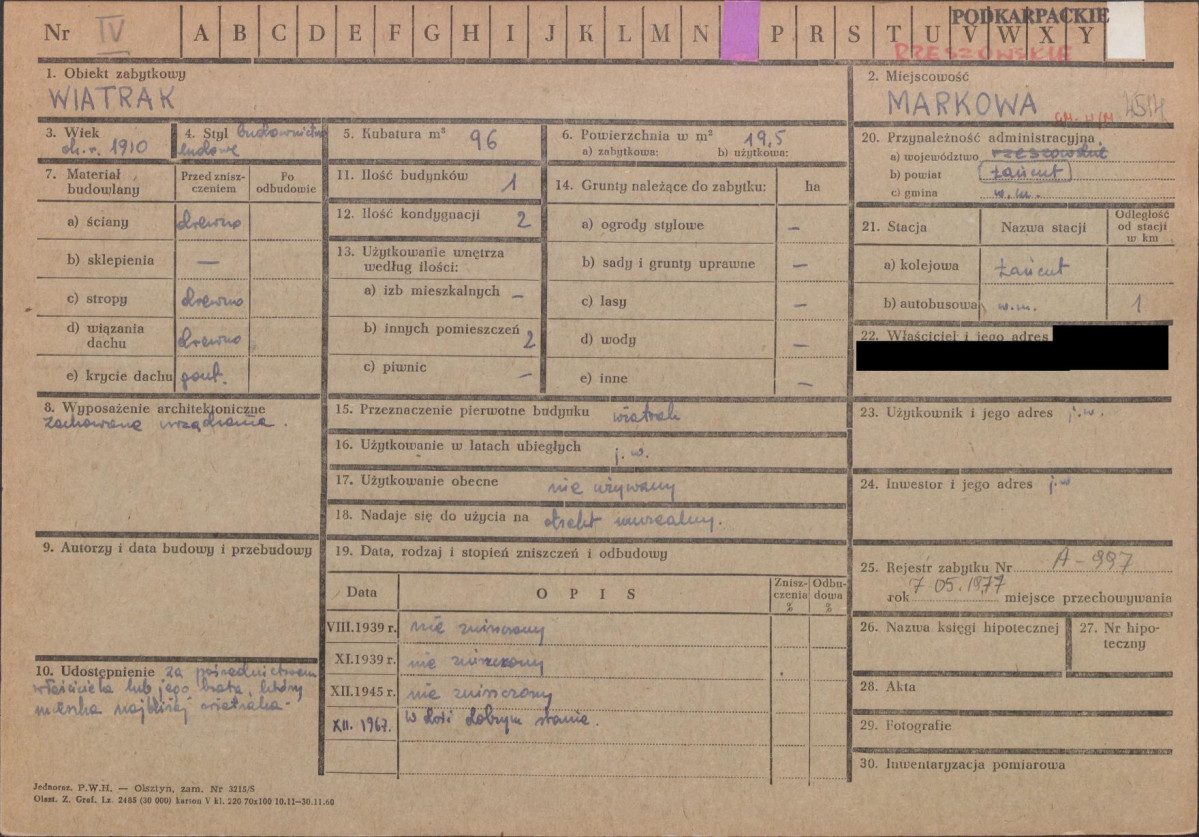 Nr IV A B C D E F G H I J K L M N P R S T U V W X Y
PODKARPACKIE
RZESZOWSKIE
1. Obiekt zabytkowy
WIATRAK
2. Miejscowość
MARKOWA
3. Wiek
ok. r. 1910
4. Styl budownictwo
ludowe
5. Kubatura m³ 96
6. Powierzchnia w m² 19,5
a) zabytkowa: b) użytkowa:
7. Materiał budowlany
Przed zniszczeniem
Po odbudowie
a) ściany drewno
b) sklepienia —
c) stropy drewno
d) wiązania dachu drewno
e) krycie dachu gont.
8. Wyposażenie architektoniczne
zachowane urządzenia.
9. Autorzy i data budowy i przebudowy
10. Udostępnienie za pośrednictwem
właściciela lub jego brata, który
mieszka najbliżej wiatraka.
11. Ilość budynków 1
12. Ilość kondygnacji 2
13. Użytkowanie wnętrza
według ilości:
a) izb mieszkalnych —
b) innych pomieszczeń 2
c) piwnic —
14. Grunty należące do zabytku: ha
a) ogrody stylowe —
b) sady i grunty uprawne —
c) lasy —
d) wody —
e) inne —
15. Przeznaczenie pierwotne budynku wiatrak
16. Użytkowanie w latach ubiegłych j. w.
17. Użytkowanie obecne nie używany
18. Nadaje się do użycia na obiekt muzealny.
19. Data, rodzaj i stopień zniszczeń i odbudowy
Data OPIS Zniszczenia % Odbudowa %
VIII.1939 r. nie zniszczony
XI.1939 r. nie zniszczony
XII.1945 r. nie zniszczony
XII. 1967. w dość dobrym stanie.
20. Przynależność administracyjna
a) województwo rzeszowskie
b) powiat Łańcut
c) gmina w.m.
21. Stacja Nazwa stacji Odległość od stacji w km
a) kolejowa Łańcut
b) autobusowa w.m. 1
22. Właściciel i jego adres
23. Użytkownik i jego adres j.w.
24. Inwestor i jego adres j.w
25. Rejestr zabytku Nr A-997
rok 7 05.1977 miejsce przechowywania
26. Nazwa księgi hipotecznej
27. Nr hipoteczny
28. Akta
29. Fotografie
30. Inwentaryzacja pomiarowa
Jednoraz. P.W.H. — Olsztyn, zam. Nr 3215/S
Olszt. Z. Graf. Lz. 2485 (30 000) karton V kl. 220 70x100 10.11—30.11.60